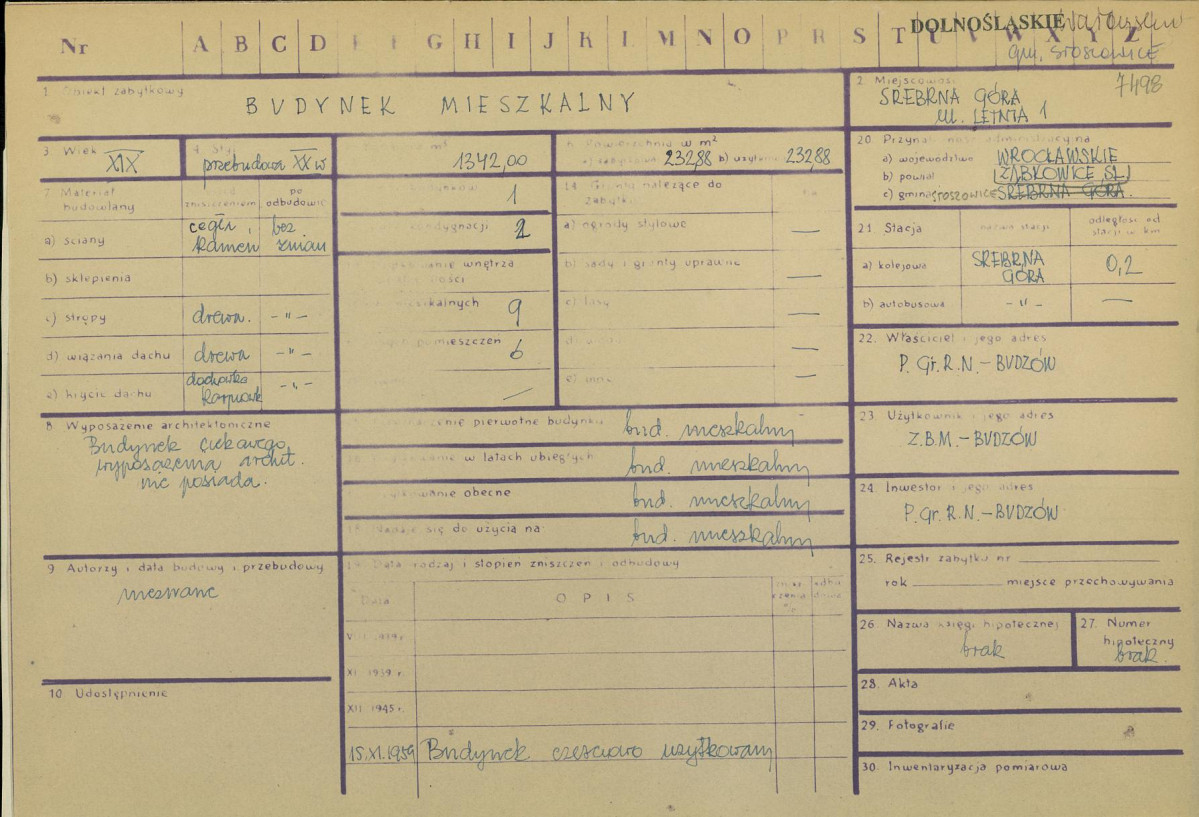 DOLNOŚLĄSKIE
gm. STOSZOWICE
Nr A B C D G H I J K L M N O P R S T U V W X Y Z
1. Obiekt zabytkowy
BUDYNEK MIESZKALNY
2. Miejscowość
7498
SREBRNA GÓRA
ul. LETNIA 1
3. Wiek
XIX
4. Styl
przebudowa XX w
m³
1342,00
Powierzchnia w m²
232,88 b) użytkowa 232,88
20. Przynależność administracyjna
a) województwo WROCŁAWSKIE
b) powiat ZĄBKOWICE ŚL.
c) gmina STOSZOWICE SREBRNA GÓRA
7. Materiał budowlany
przed zniszczeniem
po odbudowie
a) ściany
cegła, kamień
bez zmian
b) sklepienia
c) stropy drewn. -"-
d) wiązania dachu drewn -"-
e) krycie dachu
dachówka karpiówk
-"-
1
kondygnacji 2
wnętrza
mieszkalnych 9
pomieszczeń 6
—
14. Grunty należące do zabytku
ha
a) ogrody stylowe —
b) sady i grunty uprawne —
c) lasy —
—
e) inne —
21. Stacja
nazwa stacji
odległość od stacji w km
a) kolejowa
SREBRNA GÓRA
0,2
b) autobusowa -"- —
22. Właściciel i jego adres
P.Gr.R.N.-BUDZÓW
8. Wyposażenie architektoniczne
Budynek ciekawego
wyposażenia archit.
nie posiada.
pierwotne budynku bud. mieszkalny
w latach ubiegłych bud. mieszkalny
obecne bud. mieszkalny
się do użycia na bud. mieszkalny
23. Użytkownik i jego adres
Z.B.M.-BUDZÓW
24. Inwestor i jego adres
P.Gr.R.N.-BUDZÓW
9. Autorzy i data budowy i przebudowy
nieznane
19. Data rodzaj i stopień zniszczeń i odbudowy
Data
OPIS
odbudowa
1939 r.
XII 1945 r.
15.XI.1959 Budynek częściowo użytkowany
25. Rejestr zabytku nr
rok miejsce przechowywania
26. Nazwa księgi hipotecznej
brak
27. Numer hipoteczny
brak.
10. Udostępnienie
28. Akta
29. Fotografie
30. Inwentaryzacja pomiarowa